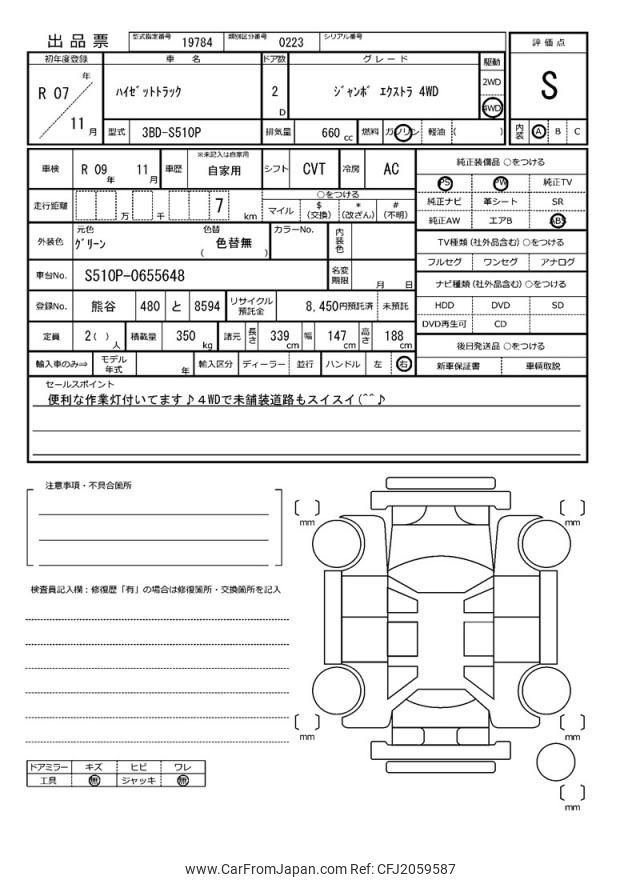 出品票 型式指定番号 19784 類別区分番号 0223 シリアル番号
評価点
S
内装 A B C
初年度登録 車名 ドア数 グレード 駆動
R 07 年 11 月 ﾊｲｾﾞｯﾄﾄﾗｯｸ 2 D ｼﾞｬﾝﾎﾞ ｴｸｽﾄﾗ 4WD 2WD 4WD
型式 3BD-S510P 排気量 660 cc 燃料 ガソリン 軽油 ( )
車検 R 09 年 11 月 車歴 ※未記入は自家用 自家用 シフト CVT 冷房 AC
走行距離 万 千 7 km ○をつける
マイル $(交換) *(改ざん) #(不明)
外装色 元色 ｸﾞﾘｰﾝ 色替 色替無 ( ) カラーNo. 内装色
車台No. S510P-0655648 名変期限 月 日
登録No. 熊谷 480 と 8594 リサイクル預託金 8,450円預託済 未預託
定員 2( )人 積載量 350 kg 諸元 長さ 339 cm 幅 147 cm 高さ 188 cm
輸入車のみ⇒ モデル年式 年 輸入区分 ディーラー 並行 ハンドル 左 右
純正装備品 ○をつける
PS PW 純正TV
純正ナビ 革シート SR
純正AW エアB ABS
TV種類 (社外品含む) ○をつける
フルセグ ワンセグ アナログ
ナビ種類 (社外品含む) ○をつける
HDD DVD SD
DVD再生可 CD
後日発送品 ○をつける
新車保証書 車輌取説
セールスポイント
便利な作業灯付いてます♪4WDで未舗装道路もスイスイ(^^♪
注意事項・不具合箇所
検査員記入欄：修復歴「有」の場合は修復箇所・交換箇所を記入
[ ] mm
[ ] mm
[ ] mm
[ ] mm
[ ] mm
ドアミラー キズ ヒビ ワレ
工具 無 ジャッキ 無
www.CarFromJapan.com Ref: CFJ2059587